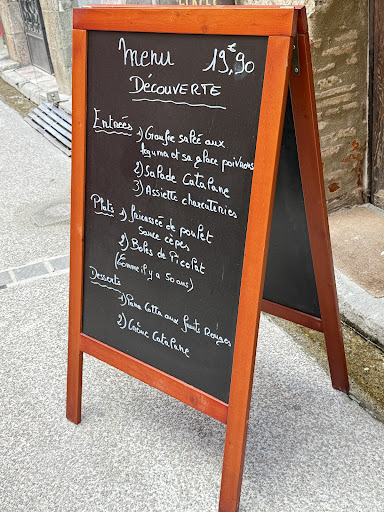 Menu 19,€90
Découverte
Entrées
1) Gaufre salée aux
légumes et sa glace poivrons
2) Salade Catalane
3) Assiette charcuteries
Plats
1) fricassée de poulet
sauce cèpes
2) Boles de Picolat
(Comme il y a 50 ans)
Desserts
1) Pana Cotta aux fruits Rouges
2) Crème Catalane